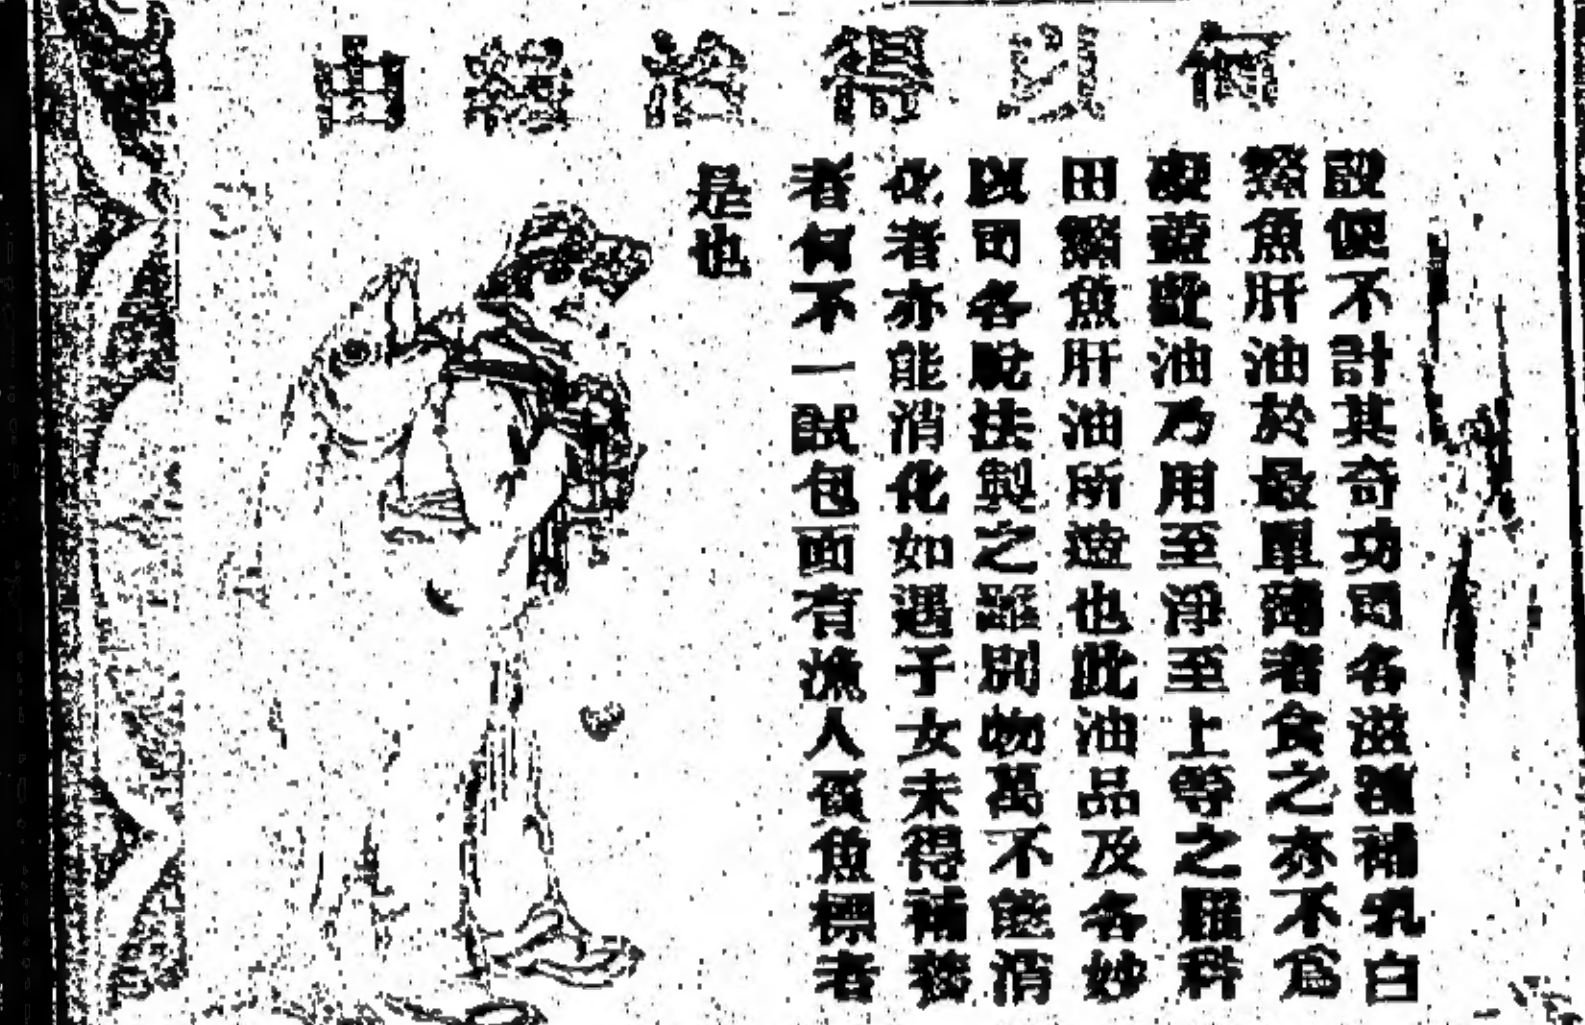 何以得 由
便不計其奇功司各滋補乳白
鰵魚肝油於最單薄者食之亦不為
礙蓋該油乃用至淨至上等之羅科
田鰵魚肝油所造也此油品及各妙
以司各脫法製之雖別物萬不能消
化者亦能消化如遇子女未得補養
者何不一試包面有漁人負魚標者
是也